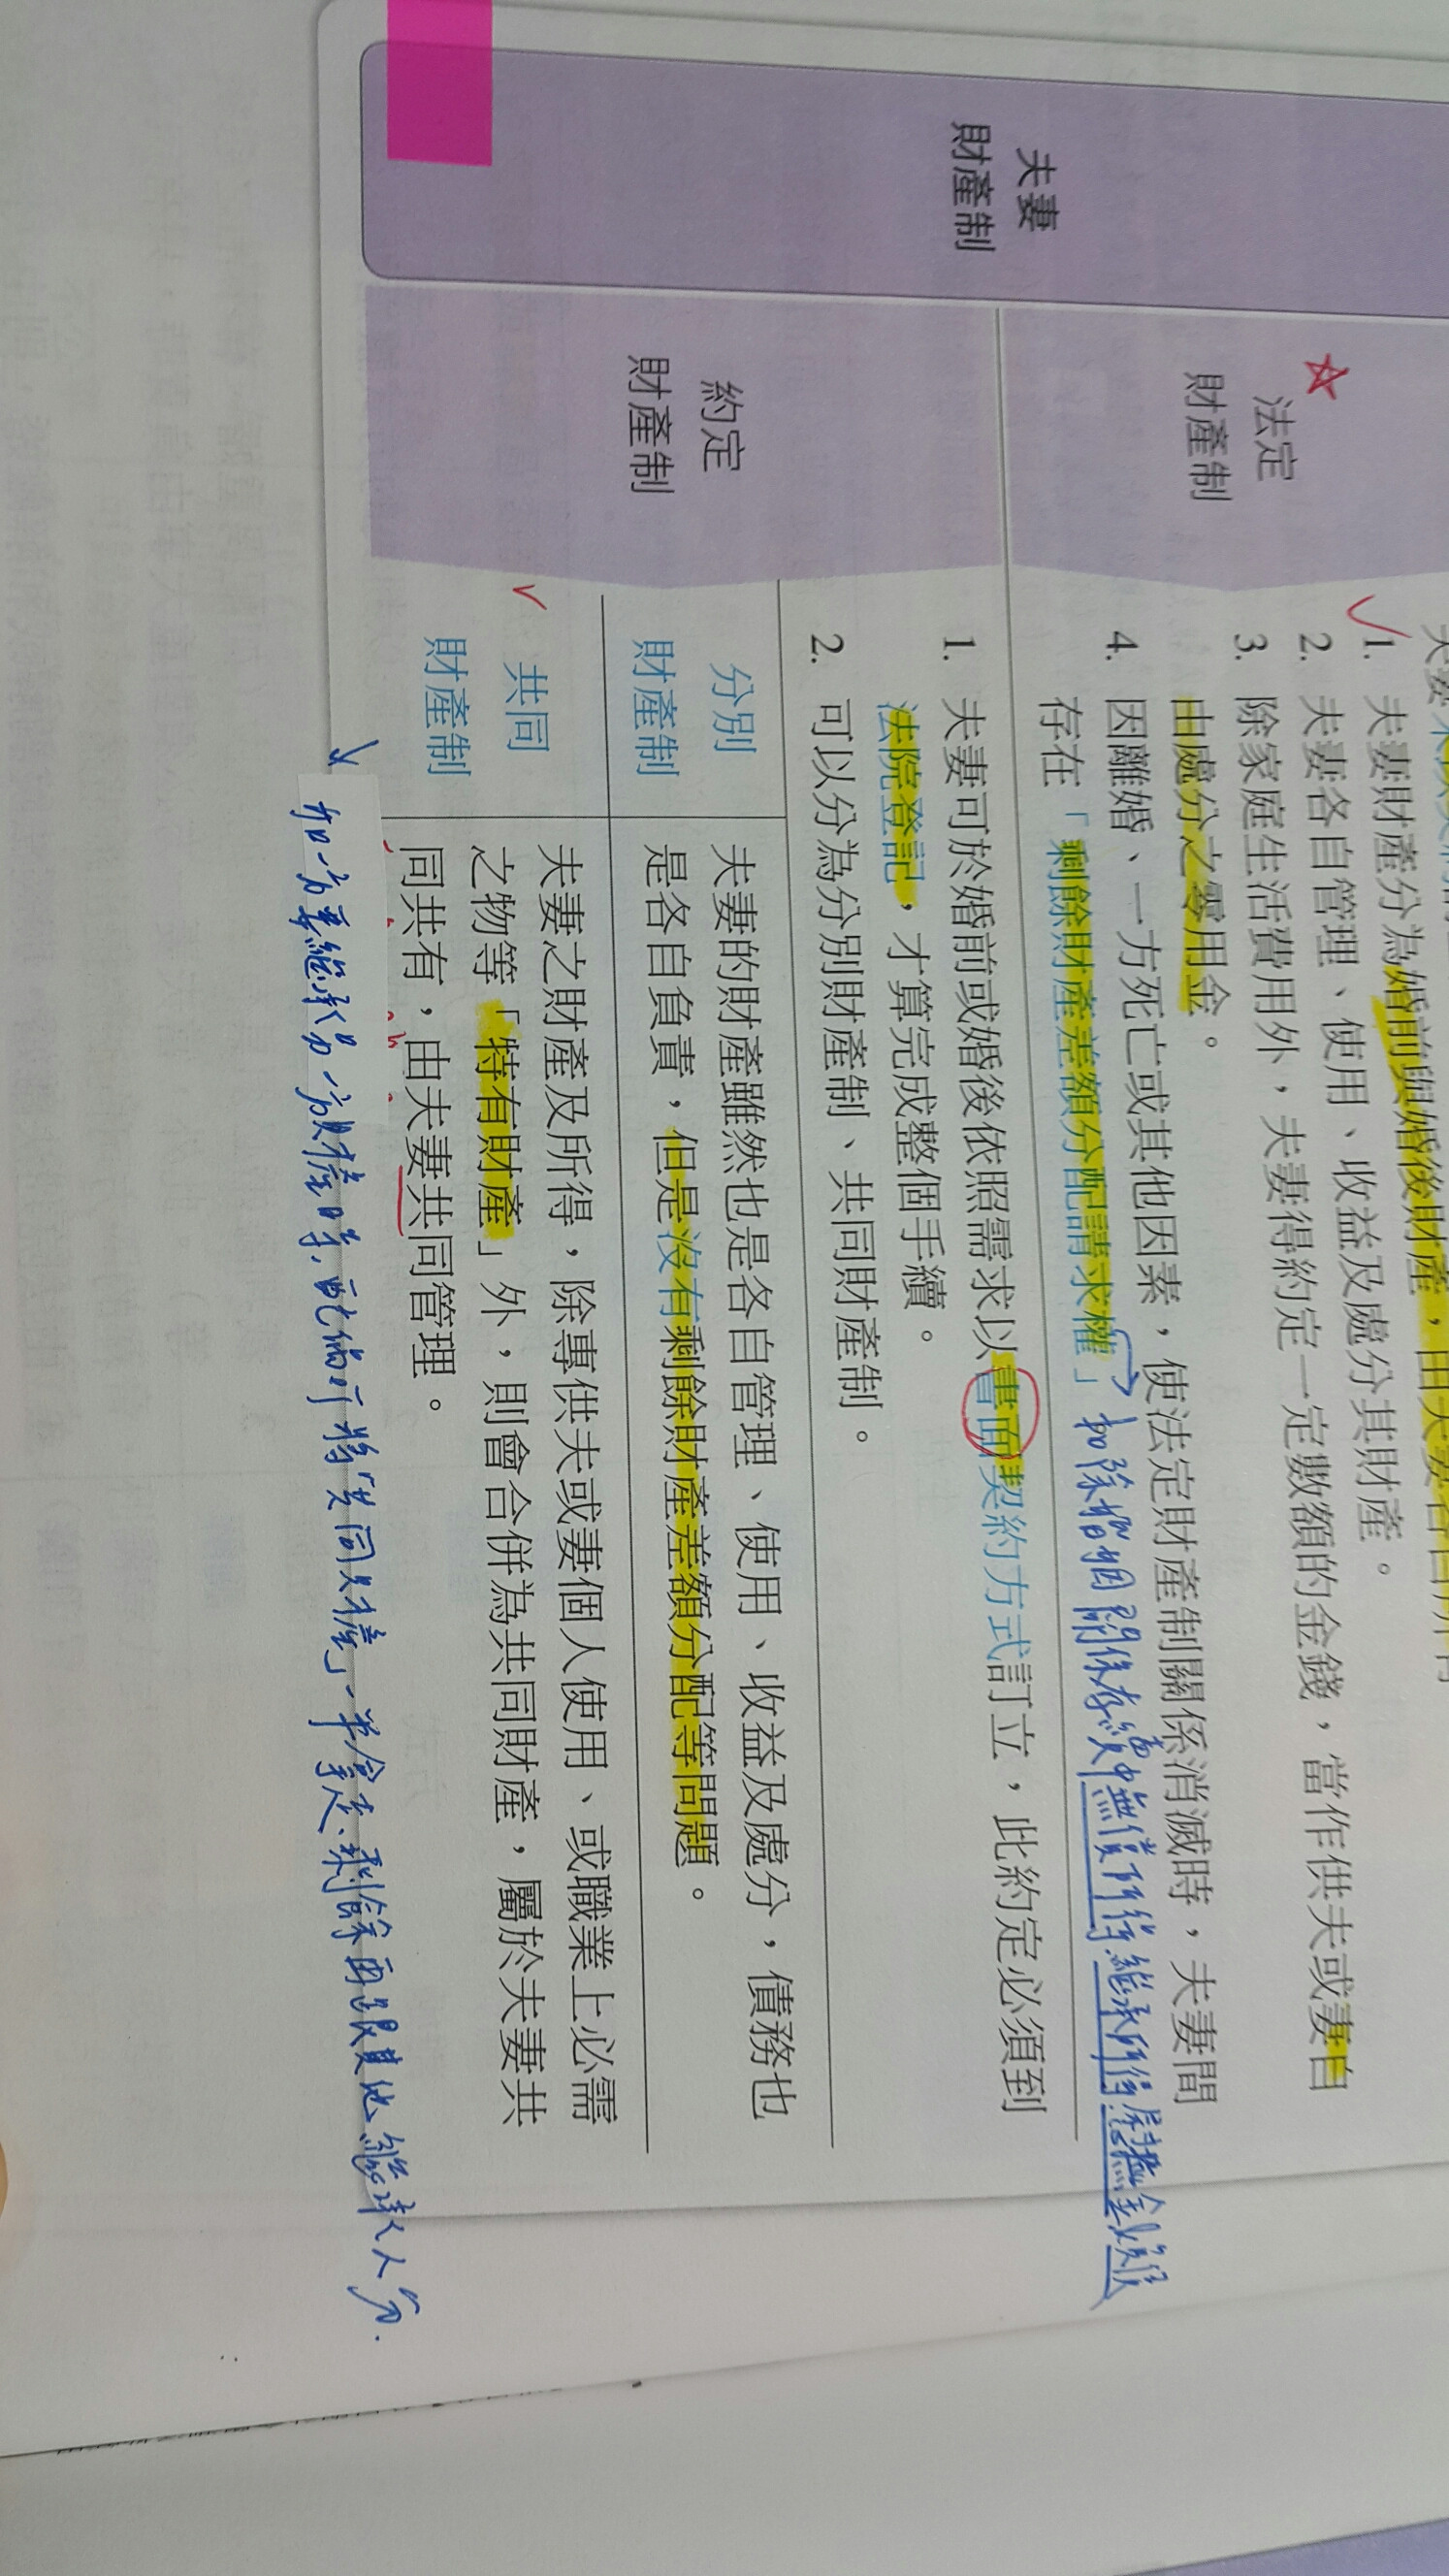 夫妻
財產制
法定
財產制
1. 夫妻財產分為婚前與婚後財產，由夫妻各自所有
2. 夫妻各自管理、使用、收益及處分其財產。
3. 除家庭生活費用外，夫妻得約定一定數額的金錢，當作供夫或妻自
由處分之零用金。
4. 因離婚、一方死亡或其他因素，使法定財產制關係消滅時，夫妻間
存在「剩餘財產差額分配請求權」扣除婚姻關係存續中無償所得.繼承所得.慰撫金
約定
財產制
1. 夫妻可於婚前或婚後依照需求以書面契約方式訂立，此約定必須到
法院登記，才算完成整個手續。
2. 可以分為分別財產制、共同財產制。
分別
財產制
夫妻的財產雖然也是各自管理、使用、收益及處分，債務也
是各自負責，但是沒有剩餘財產差額分配等問題。
共同
財產制
夫妻之財產及所得，除專供夫或妻個人使用、或職業上必需
之物等「特有財產」外，則會合併為共同財產，屬於夫妻共
同共有，由夫妻共同管理。
如一方要繼承另一方財產時,配偶可將「共同財產」一半拿走.剩餘再跟其他繼承人分.